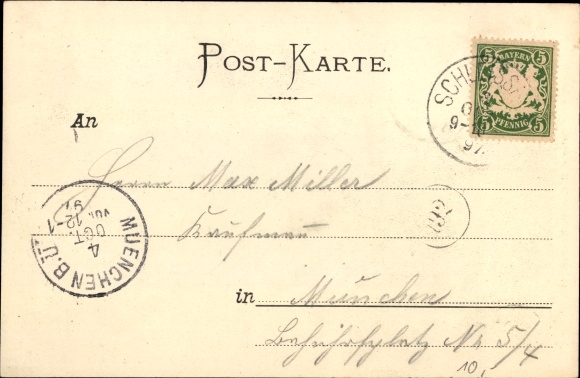 POST-KARTE.
BAYERN
5 5
5 PFENNIG 5
SCHL
9-
97
An
Herrn Max Miller
Kaufmann
MUENCHEN B.II
4
OCT.
VOR. 12-1
97
in München
Bahnhofplatz Nr 5/4
10,